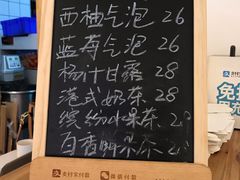 西柚气泡 26
蓝莓气泡 26
杨汁甘露 28
港式奶茶 28
缤纷水果茶 2
百香果茶 2
支付宝付款
微信付款
免